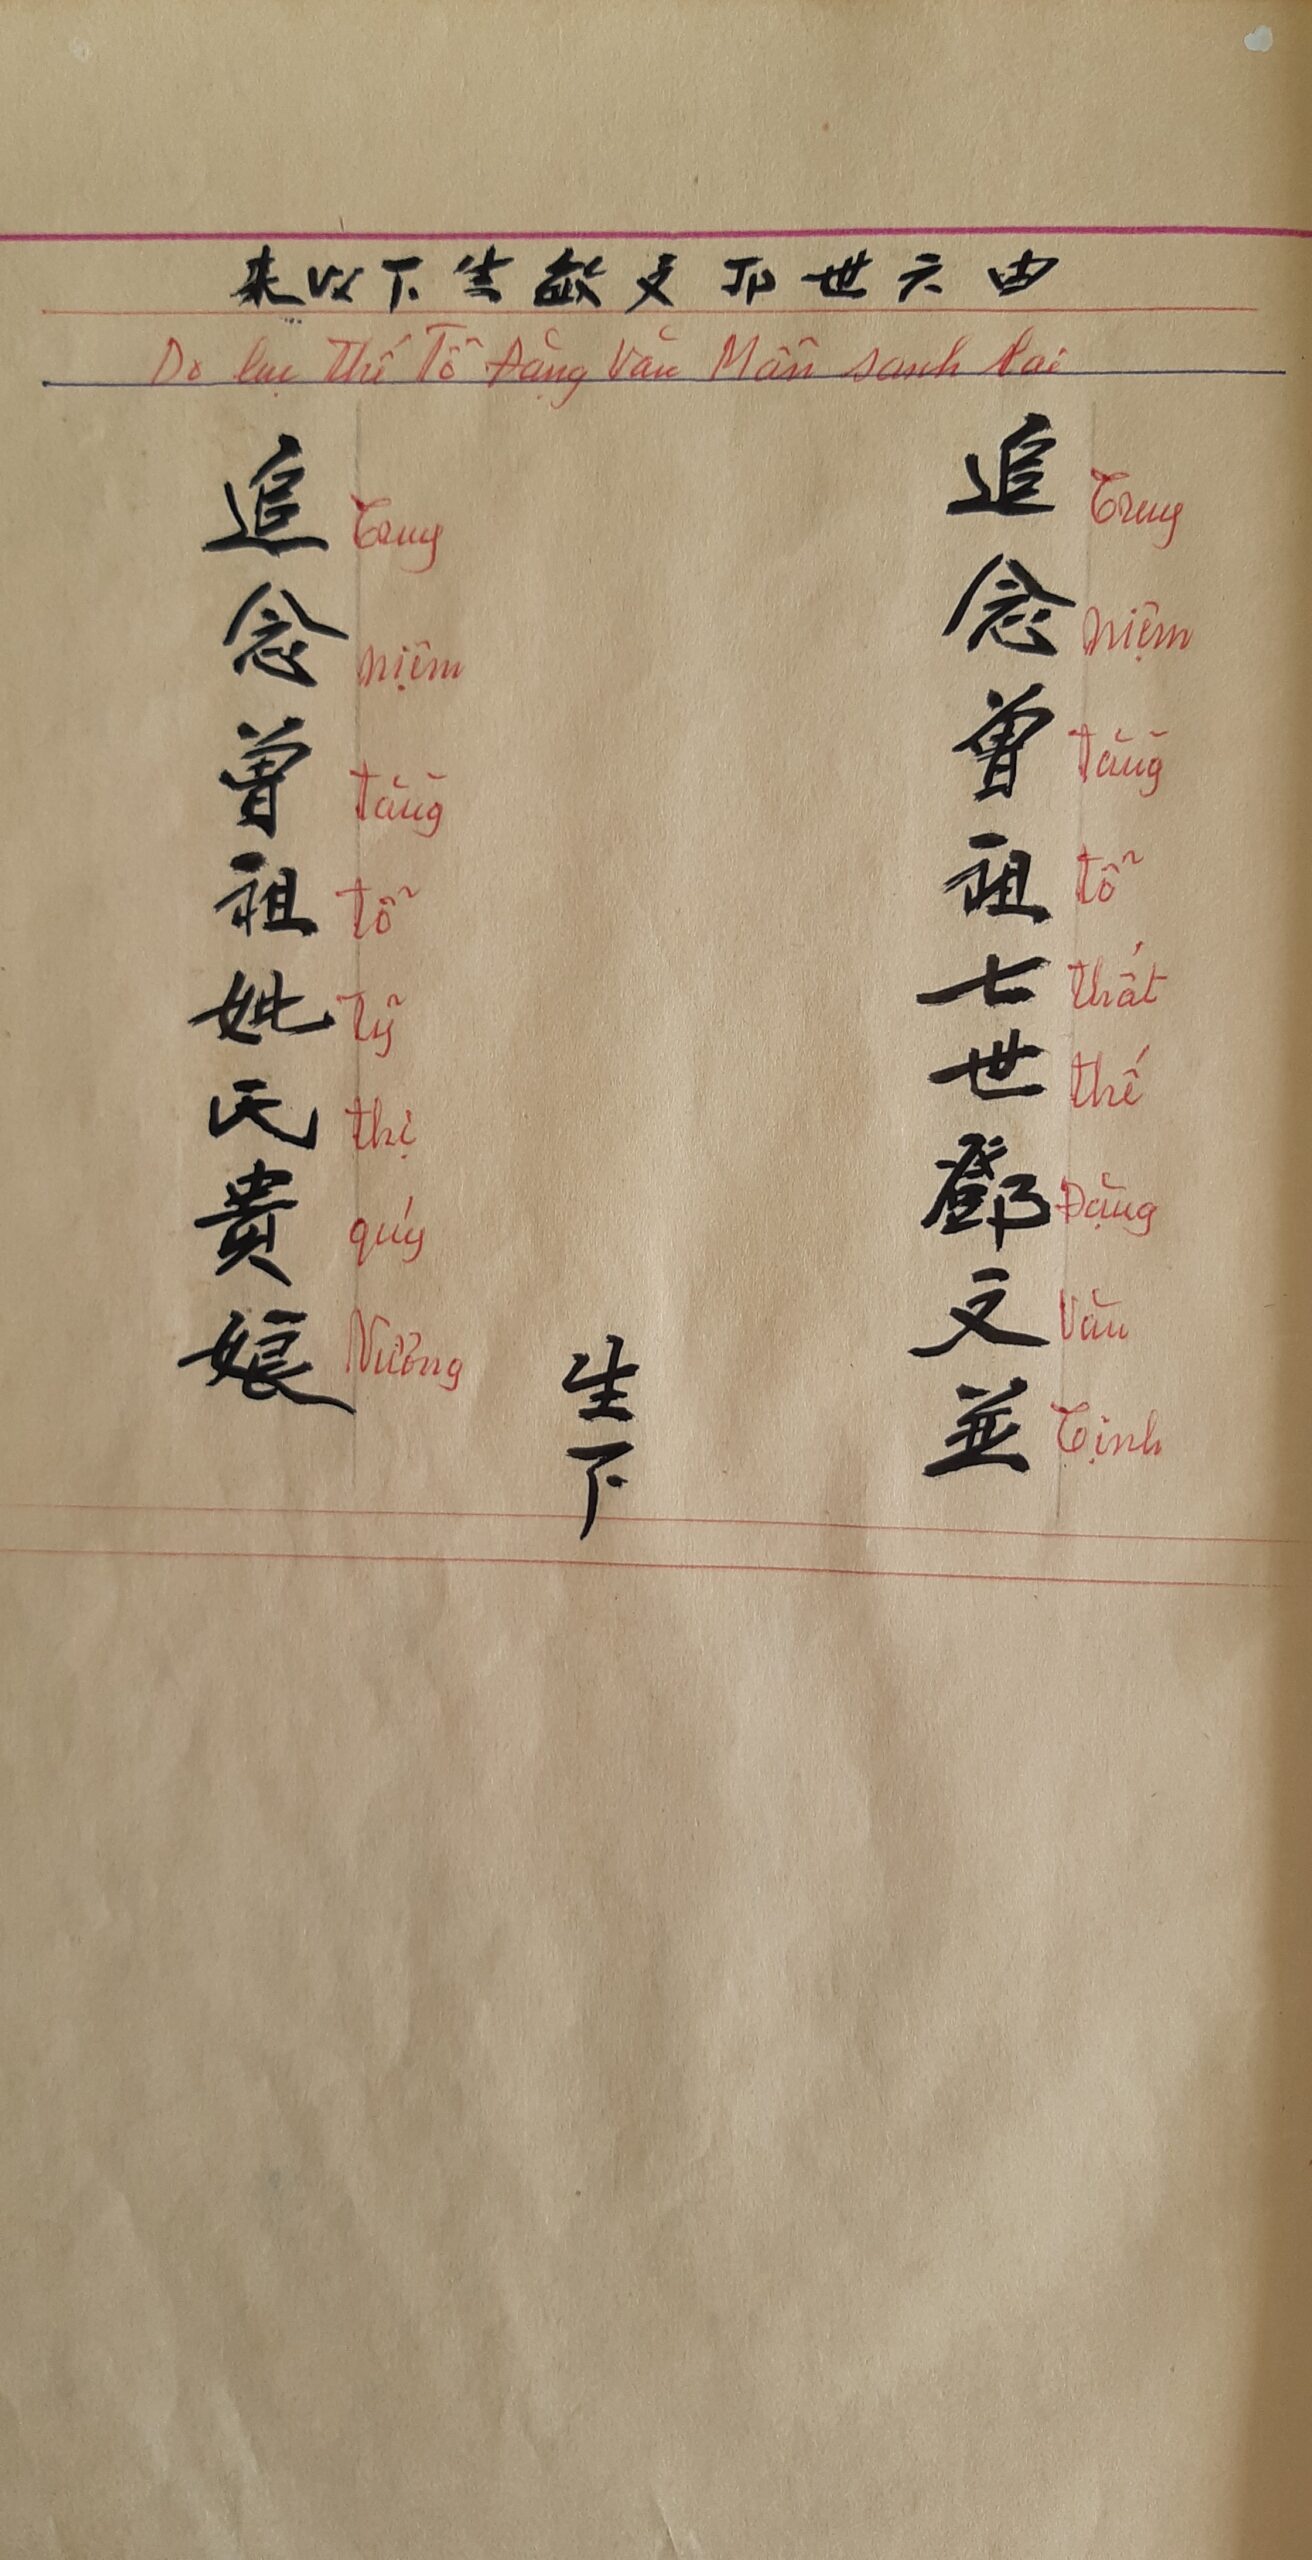 由六世邓文敏生下以来
Do lục Thế Tổ Đặng Văn Mẫn sanh hai
追念曾祖七世鄧文並
Truy niệm tằng tổ thất thế Đặng Văn Tịnh
生下
追念曾祖妣氏貴娘
Truy niệm tằng tổ Tỷ thị quý Nương